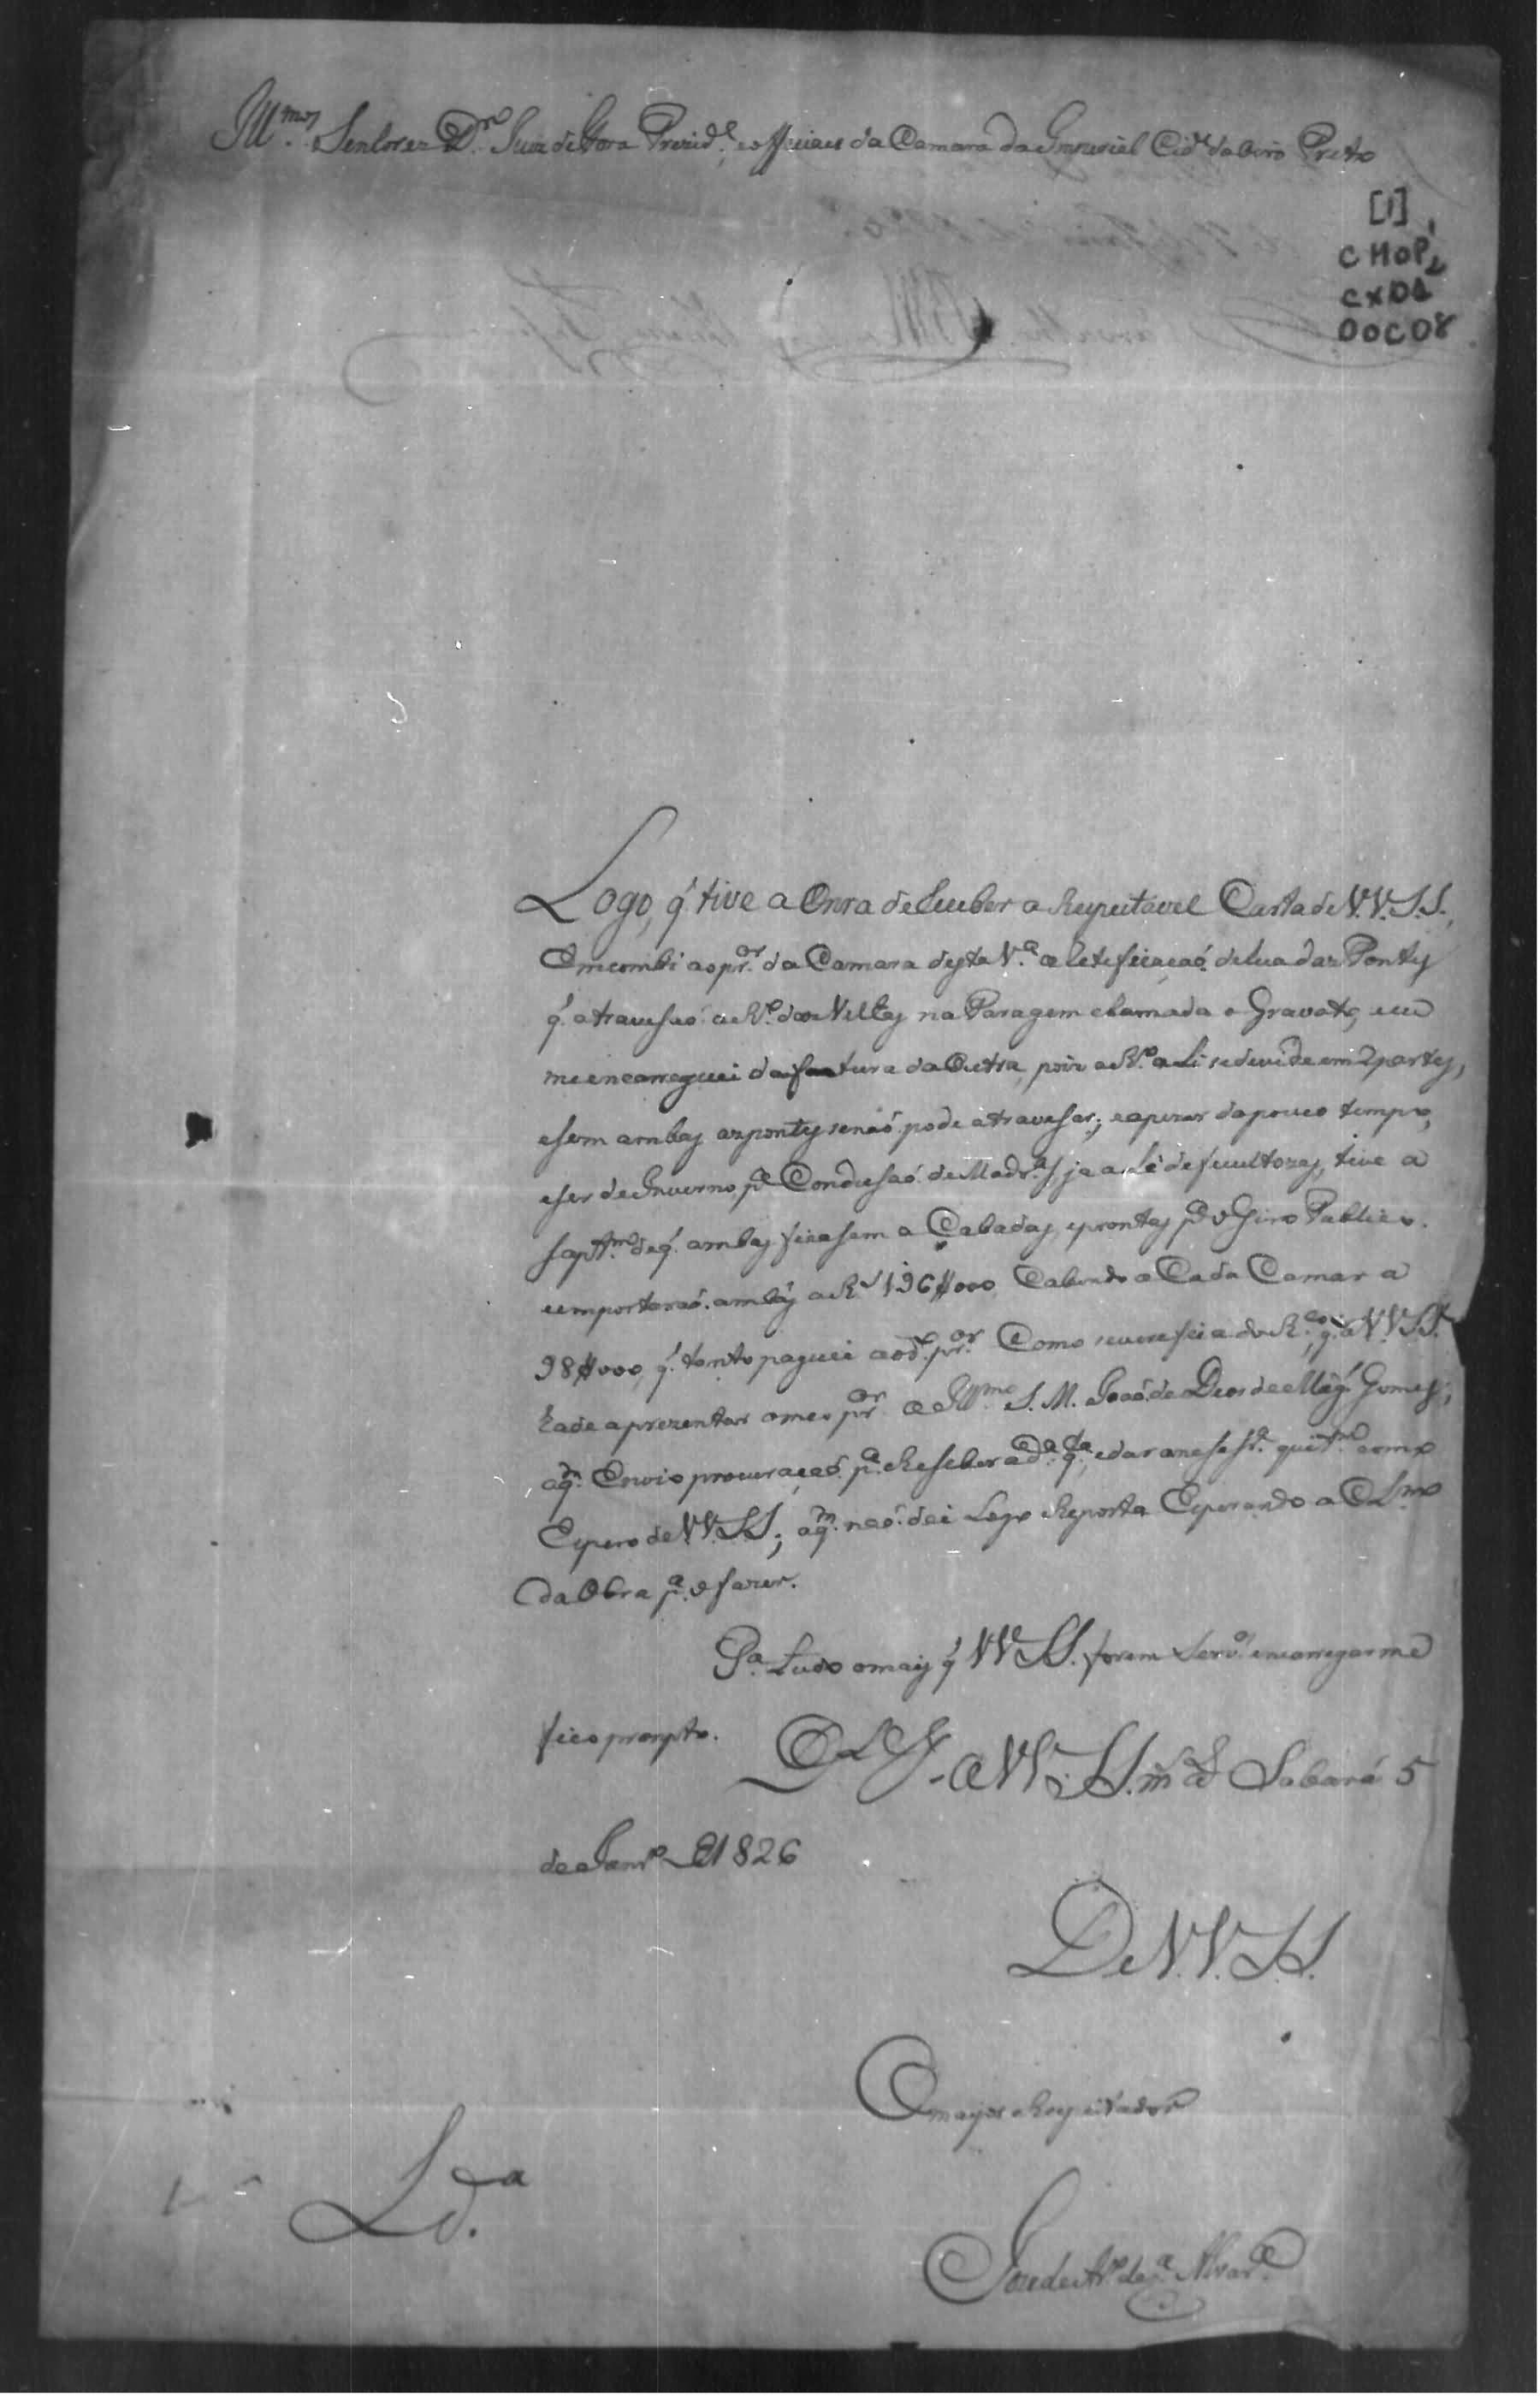 Ill.mos Senhores D.or Juiz de Fora Prezid.e, e officiaes da Camara da Imperial Cid.e do Ouro Preto
[1]
CMOP
CX01
DOC08
Logo, q' tive a Onra de receber a Respeitavel Carta de V.V.S.S.,
Emcombi ao pr.or da Camara desta V.a a retificação de hua das Pontes
q' atravesão o R.o das Velhas na Paragem chamada o Gravatá, e eu
me encarreguei da fatura da Outra, pois o R.o ali se devide em 2 partes,
e sem ambas as pontes se não pode atravesar; e apezar do pouco tempo,
e ser de Inverno p.a Condusão de Madr.as, ja ali deficultozas, tive a
de q' ambas ficasem a Cabadas, e prontas p.a o Giro Publico.
e emportarão ambas a R.s 196$000 Cabendo a Cada Camara
98$000, q' tanto paguei ao d.o pr.or Como se verefica do R.co, q' a V.V.S.S.
hade aprezentar o meo pr.or o Ill.mo S. M. João de Deos de Mag.es Gomes,
a q.m Envio procuração p.a Reseber a d.a q.ta, e dar a nesesr.a quit.am como
Espero de V.V.S.S.; a q.m não dei Logo Reposta Esperando a
da Obra p.a o fazer.
P.a tudo o mais q' V.V.S.S. forem Serv.os emcarregarme
fico prompto. D.s G.e a V.V.S.S. m.s a.s Sabará 5
de Janr.o de 1826
De V.V.S.S.
O mayor Respeitador
Joze de Ar.o de Alvar.a
L.da